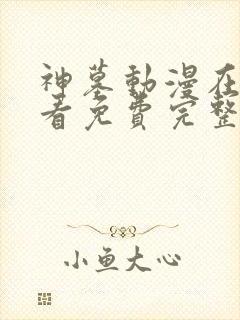 神墓動漫在
看免費完整
小魚大心